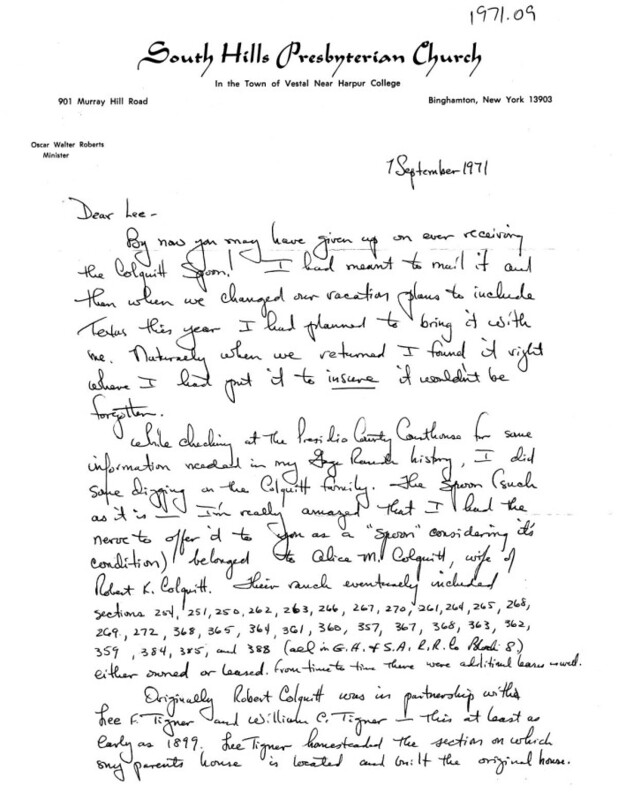 1971.09
South Hills Presbyterian Church
In the Town of Vestal Near Harpur College
901 Murray Hill Road
Binghamton, New York 13903
Oscar Walter Roberts
Minister
7 September 1971
Dear Lee -
By now you may have given up on ever receiving
the Colquitt Spoon! I had meant to mail it and
then when we changed our vacation plans to include
Texas this year I had planned to bring it with
me. Naturally when we returned I found it right
where I had put it to insure it wouldn't be
forgotten.
While checking at the Presidio County Courthouse for some
information needed in my Gage Ranch history, I did
some digging on the Colquitt family. The spoon (such
as it is — I'm really amazed that I had the
nerve to offer it to you as a "spoon" considering it's
condition) belonged to Alice M. Colquitt, wife of
Robert K. Colquitt. Their ranch eventually included
sections 254, 251, 250, 262, 263, 266, 267, 270, 261, 264, 265, 268,
269, 272, 368, 365, 364, 361, 360, 357, 367, 368, 363, 362,
359, 384, 385, and 388 (all in G.H. & S.A. R.R. Co Block 8)
either owned or leased. From time to time there were additional leases as well.
Originally Robert Colquitt was in partnership with
Lee F. Tigner and William C. Tigner — this at least as
early as 1899. Lee Tigner homesteaded the section on which
my parents house is located and built the original house.